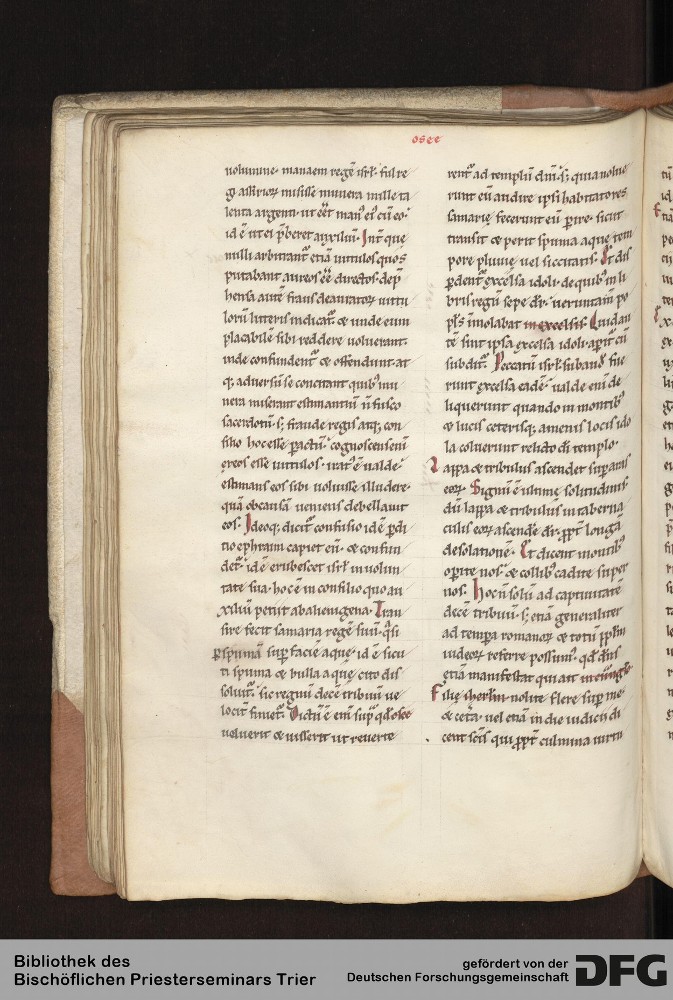 osee
uolumine. manaem regē isrl'. ful re
gi assirioꝝ misisse munera mille ta
lenta argenti. ut eēt
id ē ut ei p̄beret auxiliū. Int̄ que
nulli arbitrant᷑ etiā uitulos quos
putabant aureos eē directos. dep̄
hensa autē fraus deauratoꝝ uitu
loru litteris indicat᷑. & unde eum
placabilē sibi reddere uoluerant.
inde confundent᷑ & offendunt. at
q; aduersū se concitant quib; mu
nera miserant estimantiū n̄ fusco
sacerdotū. s; fraude regis atq; con
silio hoc esse pactū. cognoscens eni
ęreos esse uitulos. irat᷑ ē ualde.
estimans eos sibi uoluisse illudere.
quā ob causā ueniens debellauit
eos. Ideoq; dicit᷑ confusio idē perdi
tio ephraim capiet eū. & confun
det᷑. id ē erubescet isrl' in uolun
tate sua. hoc ē in consilio quo au
xiliū petiit ab alienigena. Tran
sire fecit samaria regē suū. q̄si
spumā sup faciē aquę. id ē sicu
ti spuma & bulla aquę cito dis
soluit᷑. sic regnū decē tribuū ue
locit᷑ finiet᷑. Dictū ē eni sup᷑ qd̄ osee
uoluerit & iusserit ut reuerte
rent᷑ ad templū dn̄i. s; quia nolue
runt eū audire ipsi habitatores
samarię fecerunt eū perire. sicut
transit & perit spuma aquę tem
pore pluuię uel siccitatis. Et dis
perdent᷑ excelsa idoli. de quib; in li
bris regū sepe dr̄. ueruntam̄ po
pl's īmolabat in excelsis. Quidam
tē sunt ipsa excelsa idoli. aperit cū
subdit᷑. Peccatū isrl'.
runt excelsa eadē. ualde eni de
liquerunt quando in montib;
& lucis ceterisq; amenis locis ido
la coluerunt relicto dī templo.
Lappa & tribulus ascendet sup aras
eoꝝ. Signū ē ultimę solitudinis.
dū lappa & tribulus in taberna
culis eoꝝ ascende dr̄. ppt̄ longā
desolationē. Et dicent montib;
operite nos. & collib; cadite super
nos. Hoc n̄ solū ad captiuitatē
decē tribuū. s; etiā generaliter
ad tempora romanoꝝ & totū pplm
iudeoꝝ referre possum᷑. qd̄ dn̄s
etiā manifestat qui ait
Filię iherlm nolite flere sup me.
& cet̄a. uel etiā in die iudicii di
cent scīs qui ppt̄ culmina uirtu
Bibliothek des
Bischöflichen Priesterseminars Trier
gefördert von der
Deutschen Forschungsgemeinschaft
DFG